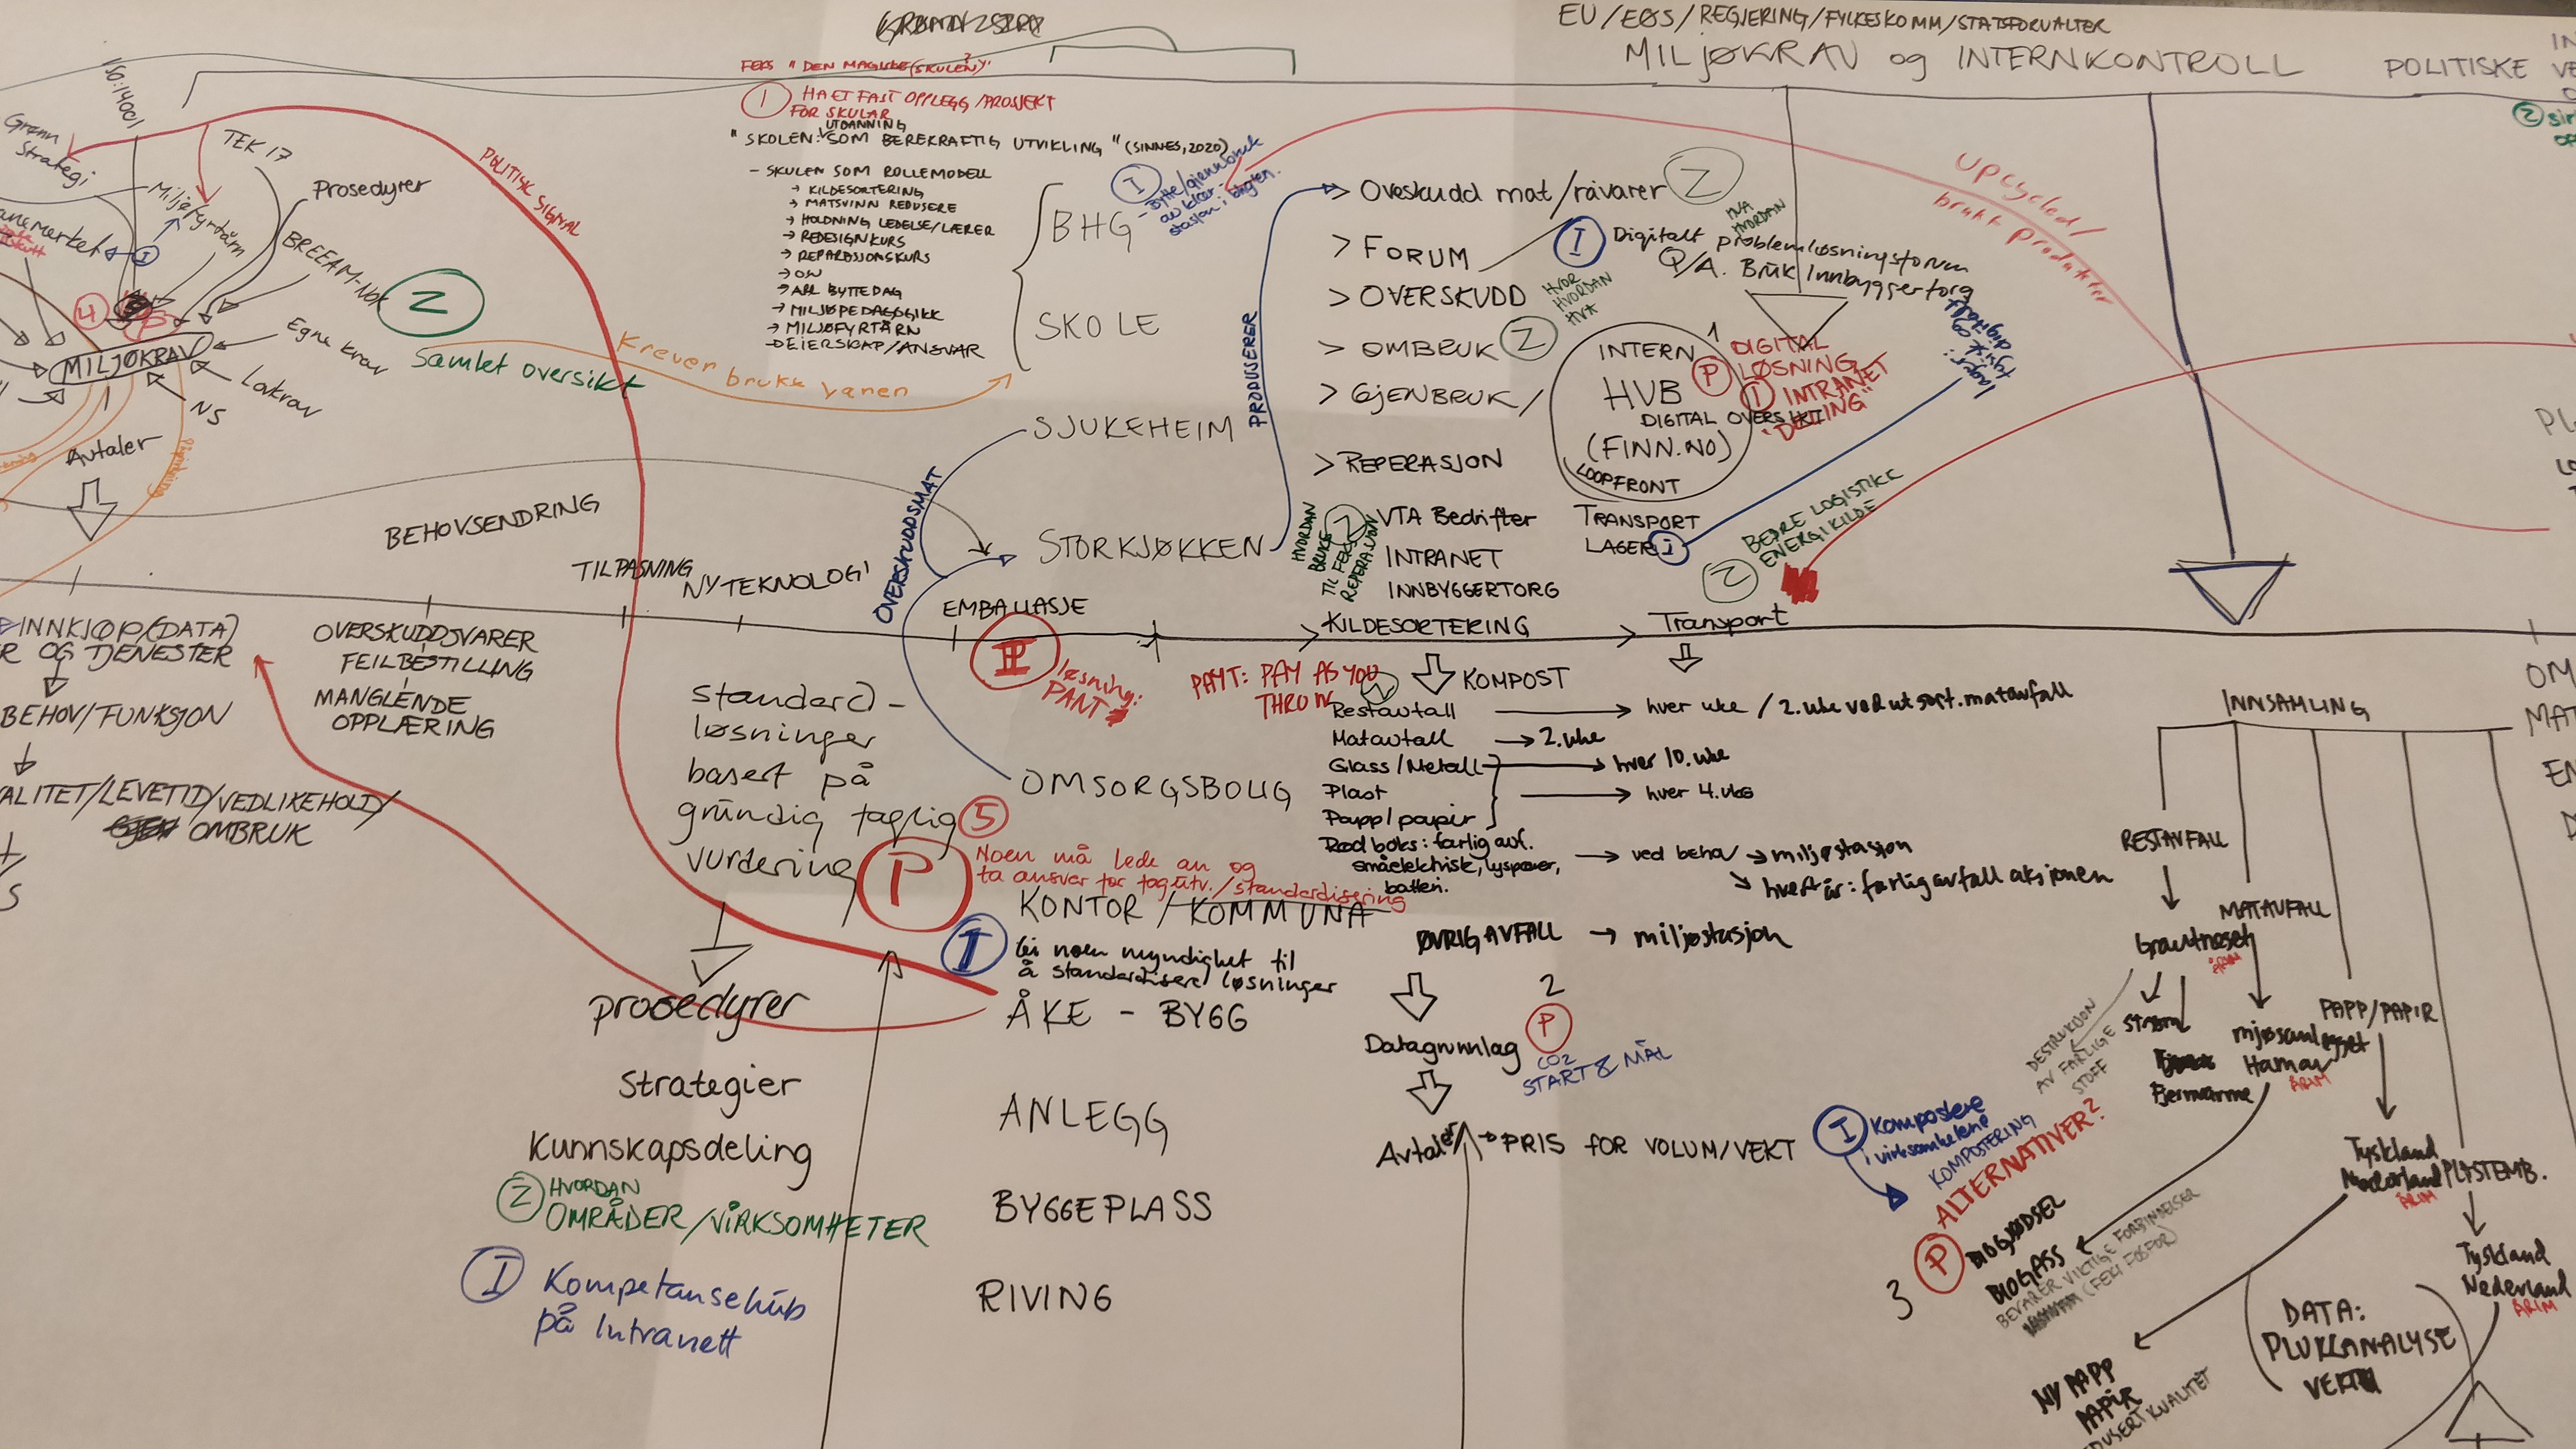 EU/EØS/REGJERING/FYLKESKOMM/STATSFORVALTER
MILJØKRAV og INTERNKONTROLL
POLITISKE
ISO:14001
Grønn
Strategi
TEK 17
Miljøfyrtårn
Prosedyrer
BREEAM-NOR
Egne krav
Lovkrav
NS
MILJØKRAV
4
Avtaler
2
Samlet oversikt
POLITISK SIGNAL
Krever brukk vanen
"DEN MAGISKE (SKULEN)"
1 HA ET FAST OPPLEGG/PROSJEKT
FOR SKULAR
UTDANNING
"SKOLEN: SOM BEREKRAFTIG UTVIKLING" (SINNES, 2020)
- SKULEN SOM ROLLEMODELL
→ KILDESORTERING
→ MATSVINN REDUSERE
→ HOLDNING LEDELSE/LÆRER
→ REDESIGNKURS
→ REPARASJONSKURS
→ OSV
→ ALL BYTTEDAG
→ MILJØPEDAGOGIKK
→ MILJØFYRTÅRN
→ EIERSKAP/ANSVAR
BHG
SKOLE
I
- Bytte/gjenbruk
av klær -
stasjon i bygten.
SJUKEHEIM
OVERSKUDDSMAT
STORKJØKKEN
PRODUSERER
> Oveskudd mat/råvarer 2
HVA
HVORDAN
> FORUM
I Digitalt problemløsningsforum
Q/A. Bruk Innbyggertorg
> OVERSKUDD
HVOR
HVORDAN
HVA
> OMBRUK 2
> GJENBRUK/
> REPERASJON
INTERN
HUB
DIGITAL OVERSIKT
(FINN.NO)
LOOPFRONT
1
P DIGITAL
LØSNING
I INTRANET
"DULING"
lager:
fysisk og
digitalt
Upcycled/
brukt produkter
HVORDAN
BRUKE
TIL FEKS
REPERASJON
2
VTA Bedrifter
INTRANET
INNBYGGERTORG
TRANSPORT
LAGER I
2 BEDRE LOGISTIKK
ENERGIKILDE
BEHOVSENDRING
TILPASNING
NY TEKNOLOGI
EMBALLASJE
løsning:
PANT
> KILDESORTERING
Transport
INNKJØP (DATA)
R OG TJENESTER
BEHOV/FUNKSJON
ALITET/LEVETID/VEDLIKEHOLD/
OMBRUK
OVERSKUDDSVARER
FEILBESTILLING
MANGLENDE
OPPLÆRING
standard-
løsninger
basert på
grundig faglig
vurdering
5
P Noen må lede an og
ta ansvar for fagutv./standardisering
PAYT: PAY AS YOU
THROW
KOMPOST
Restavfall → hver uke / 2. uke ved utsort. matavfall
Matavfall → 2. uke
Glass/Metall → hver 10. uke
Plast
Papp/papir → hver 4. uke
Rød boks: farlig avf.
småelektrisk, lyspærer,
batteri.
→ ved behov → miljøstasjon
hvert år: farlig avfall aksjonen
OMSORGSBOLIG
KONTOR / KOMMUNA
I Gi noen myndighet til
å standardisere løsninger
ÅKE - BYGG
ANLEGG
BYGGEPLASS
RIVING
prosedyrer
Strategier
Kunnskapsdeling
2 HVORDAN
OMRÅDER/VIRKSOMHETER
I Kompetansehub
på Intranett
ØVRIG AVFALL → miljøstasjon
Datagrunnlag
2
P
CO2
START & MÅL
Avtaler → PRIS FOR VOLUM/VEKT
INNSAMLING
RESTAVFALL
Grautneset
ÅRIM
Strøm
Fjernvarme
DESTRUKSJON
AV FARLIGE
STOFF
MATAVFALL
mjøsanlegget
Hamar
ÅRIM
PAPP/PAPIR
Tyskland
Nederland
ÅRIM
PLASTEMB.
Tyskland
Nederland
ÅRIM
I Kompostere
i virksomhetene
KOMPOSTERING
ALTERNATIVER?
3 P BIOGJØDSEL
BIOGASS
BEVARER VIKTIGE FORBINDELSER
(FEKS FOSFOR)
NY PAPP
PAPIR
REDUSERT KVALITET
DATA:
PLUKKANALYSE
VEKT